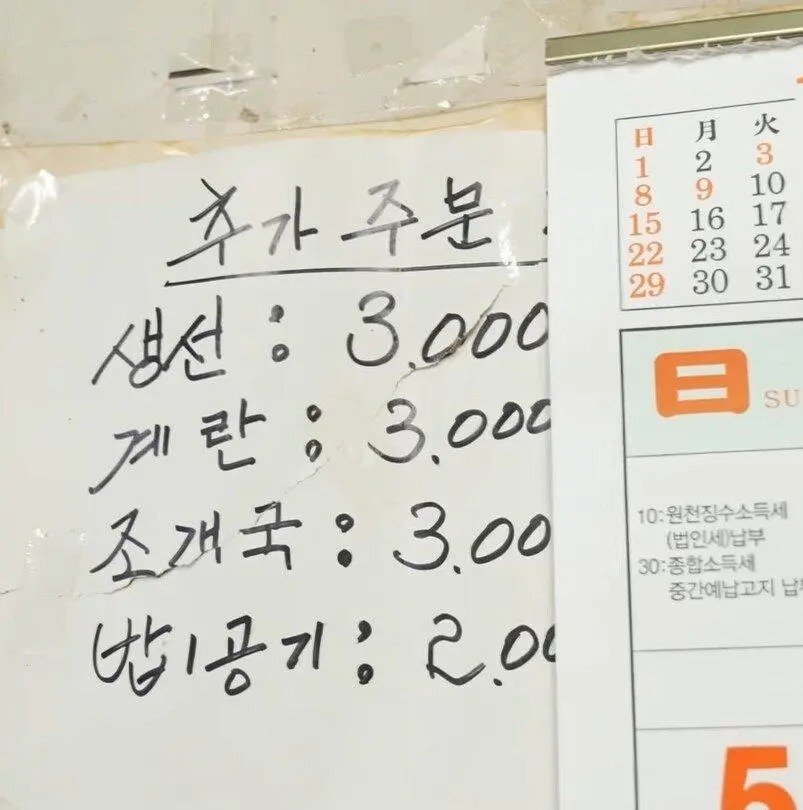 추가 주문 :
생선 : 3.000
계란 : 3.000
조개국 : 3.00
밥1공기 : 2.00
日 月 火
1 2 3
8 9 10
15 16 17
22 23 24
29 30 31
日 SU
10:원천징수소득세
(법인세)납부
30:종합소득세
중간예납고지 납부
5